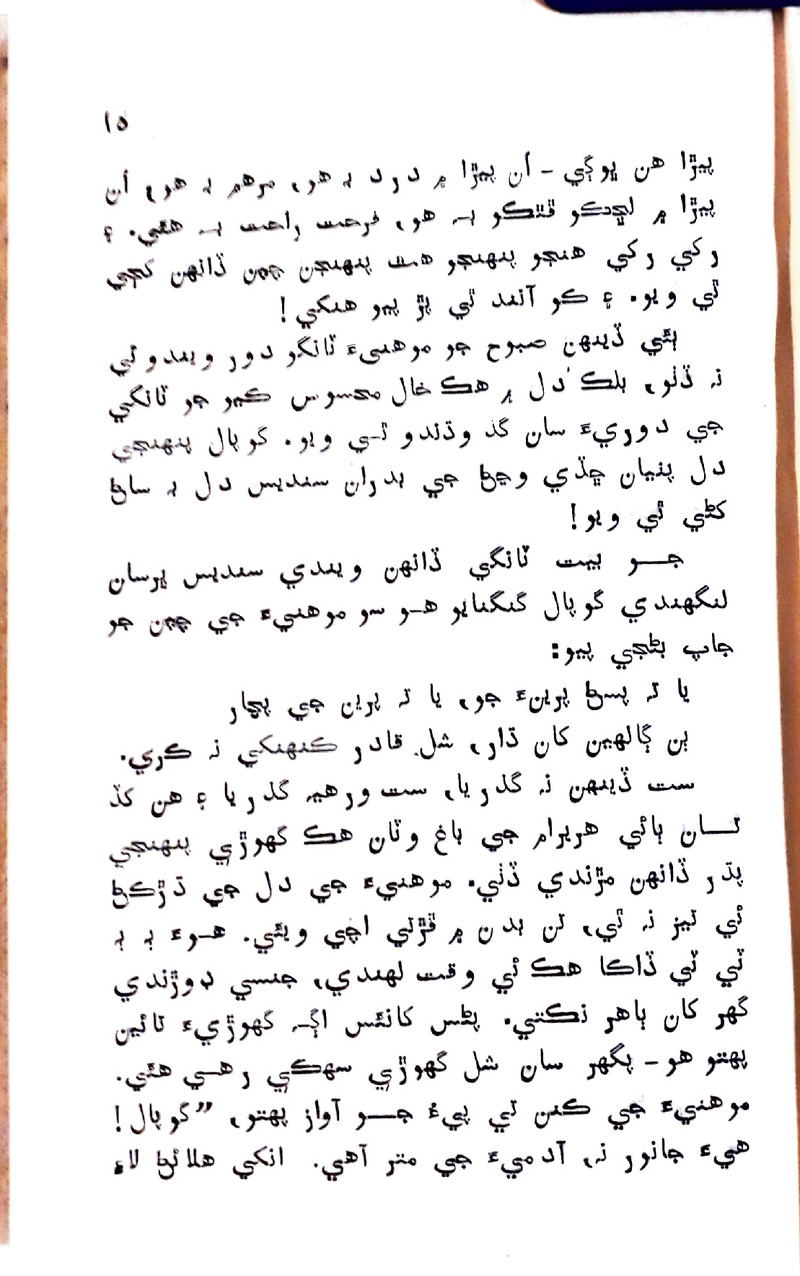 ١٥
پيڙا هن ڀوڳي - اُن پيڙا ۾ درد بہ هو، مرهم بہ هو، اُن
پيڙا ۾ لڇڪو ڦٽڪو بہ هو، فرحت راحت بہ هئي. ۽
رکي رکي هنجو پنهنجو هٿ پنهنجن چپن ڏانهن کڄي
ٿي ويو. ۽ ڪو آنند ٿي پڙ پيو هنکي!
ٻئي ڏينهن صبوح جو موهنيءَ ٽانگو دور ويندو ئي
نہ ڏٺو، بلڪ دل ۾ هڪ خال محسوس ڪيو جو ٽانگي
جي دوريءَ سان گڏ وڌندو ٿي ويو. گوپال پنهنجي
دل پٺيان ڇڏي وڃڻ جي بدران سنديس دل بہ ساڻ
کڻي ئي ويو!
جو بيت ٽانگي ڏانهن ويندي سنديس ڀرسان
لنگهندي گوپال گنگنايو هو سو موهنيءَ جي چپن جو
جاپ بڻجي پيو:
يا تہ پسڻ پرينءَ جو، يا تہ پرين جي پچار
ٻن ڳالهين کان ڌار، شل قادر ڪنهنکي نہ ڪري.
ست ڏينهن نہ گذريا، ست ورهيہ گذريا ۽ هن کڏ
تان ڀائي هريرام جي باغ وٽان هڪ گهوڙي پنهنجي
پڌر ڏانهن مڙندي ڏٺي. موهنيءَ جي دل جي ڌڙڪڻ
ئي تيز نہ ٿي، تن بدن ۾ ڦڙتي اچي ويئي. هوءَ ٻہ ٻہ
ٽي ٽي ڏاڪا هڪ ئي وقت لهندي، جنسي ڊوڙندي
گهر کان ٻاهر نڪتي. پڻس کانئس اڳہ گهوڙيءَ تائين
پهتو هو - پگهر سان شل گهوڙي سهڪي رهي هئي.
موهنيءَ جي ڪنن تي پيءُ جو آواز پهتو، ”گوپال!
هيءَ جانور نہ، آدميءَ جي متر آهي. انکي هلائڻ لاءِ